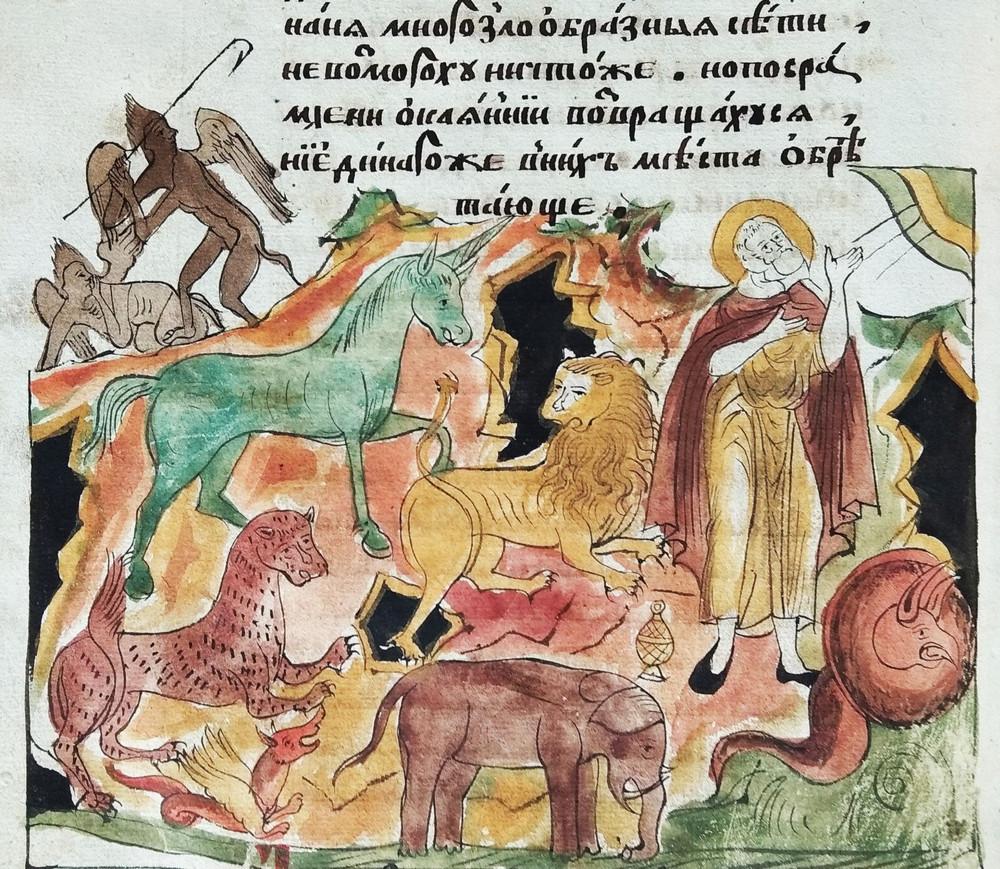 наня многоѕло о́бра́зныѧ сѣ́ти ,
невозмого́хꙋ ничто́же . но посра́
мле́ни ѻ҆каѧ́ннїи возвраща́хꙋсѧ ,
ніе҆ди́наго же в' ни́хъ мѣ́ста ѻ҆брѣ
та́юще .